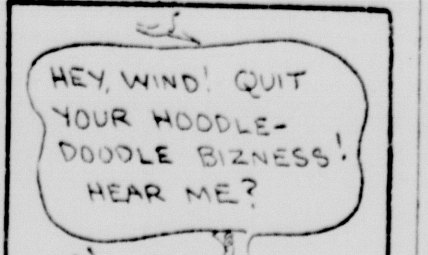 HEY, WIND! QUIT
YOUR HOODLE-
DOODLE BIZNESS!
HEAR ME?